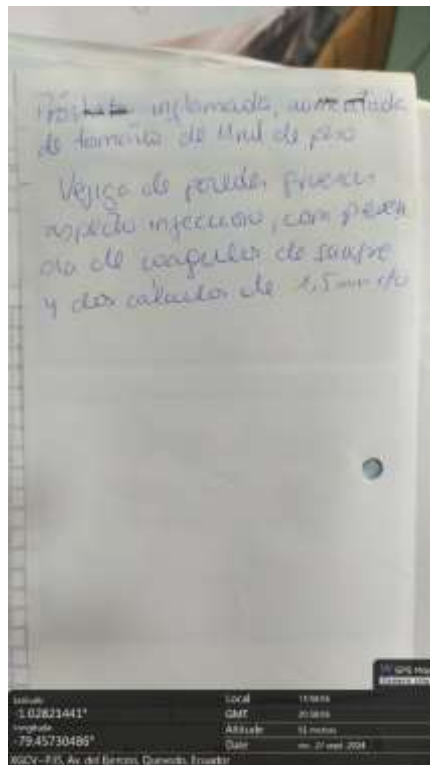 Próstata inflamada, aumentada
de tamaño de de peso
Vejiga de paredes gruesas
aspecto infeccioso, con presen
cia de coagulos de sangre
y dos calculos de 1,5 mm c/u
Latitude
-1.02821441°
Longitude
-79.45730486°
Local
GMT
Altitude
Date
51 metros
XGCV+P35, Av. del Ejercito, Quevedo, Ecuador